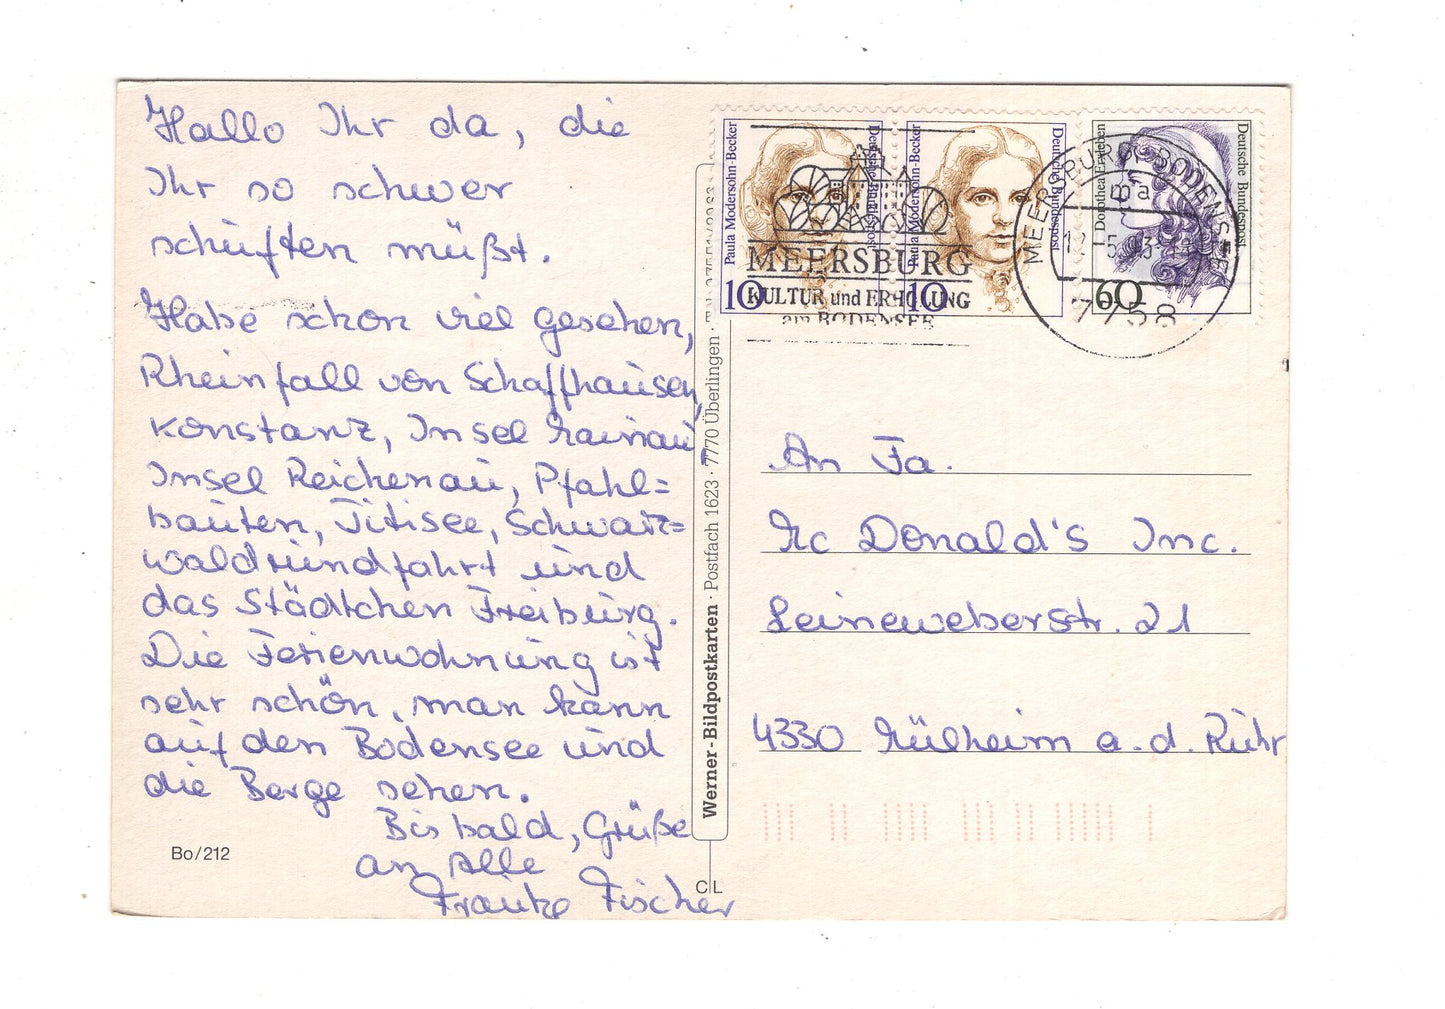 Hallo Ihr da, die
Ihr so schwer
schuften müßt.
Habe schon viel gesehen,
Rheinfall von Schaffhausen,
Konstanz, Insel Mainau
Insel Reichenau, Pfahl=
bauten, Titisee, Schwarz=
waldrundfahrt und
das Städtchen Freiburg.
Die Ferienwohnung ist
sehr schön, man kann
auf den Bodensee und
die Berge sehen.
Bis bald, Grüße
an Alle
Frauke Fischer
Bo/212
Werner-Bildpostkarten · Postfach 1623 · 7770 Überlingen ·
CL
Paula Modersohn-Becker
Deutsche Bundespost
10
Paula Modersohn-Becker
Deutsche Bundespost
10
Dorothea Erxleben
Deutsche Bundespost
60
MEERSBURG
KULTUR und ERHOLUNG
am BODENSEE
MEERSBURG, BODENSEE
ma
12.-5.93
7758
An Fa.
Mc Donald's Inc.
Leineweberstr. 21
4330 Mülheim a.d. Ruhr